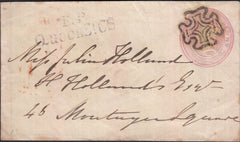 T.P
Miss Julia Holland
H Holland's Esqr
46 Montague Square